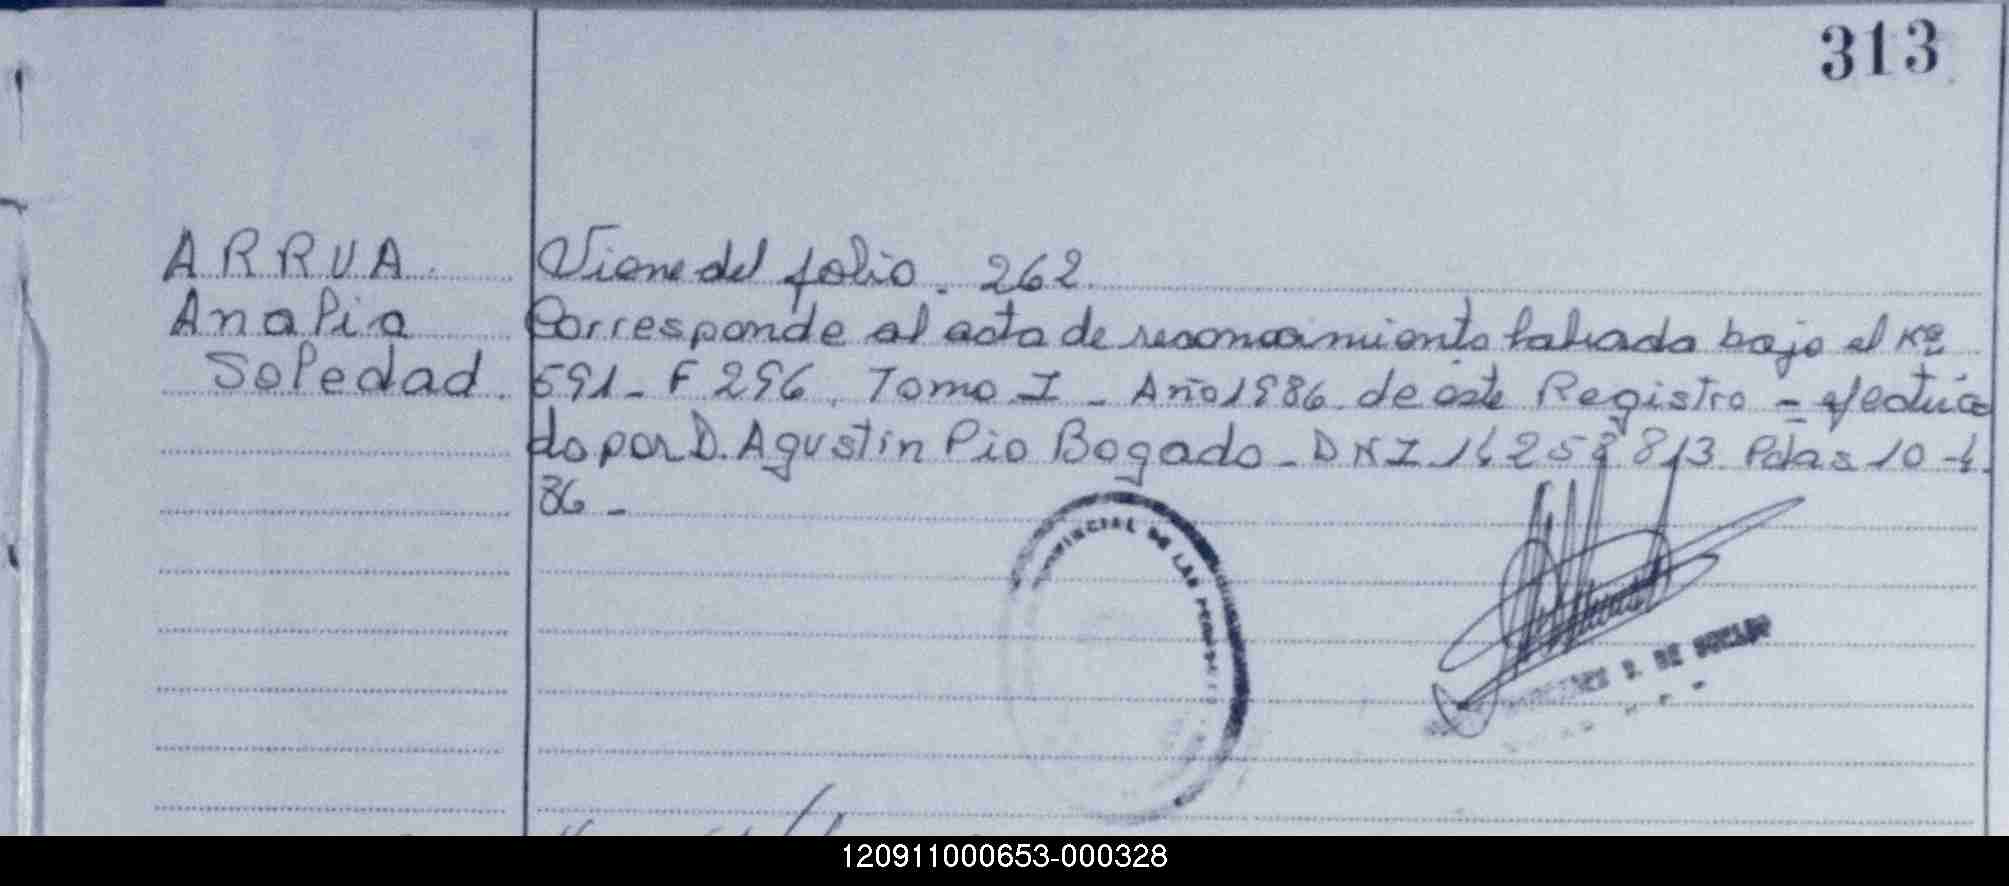 313
ARRUA Viene del folio. 262.
Analia Corresponde al acta de reconocimiento labrada bajo el Nº
Soledad. 591_ F 296. Tomo I _ Año 1986. de este Registro = efectua
do por D. Agustín Pio Bogado _ DNI 258 813 Pdas 10-4.
86 _
PROVINCIAL DE LAS PERSONAS
DE
120911000653-000328